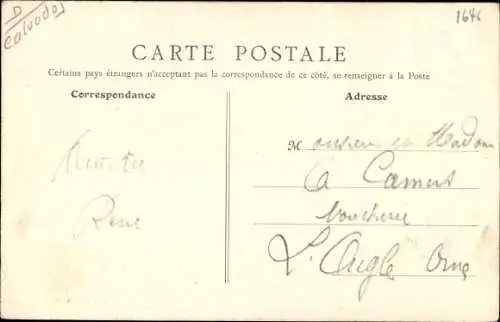 D
Calvados
1646
CARTE POSTALE
Certains pays étrangers n'acceptant pas la correspondance de ce côté, se renseigner à la Poste
Correspondance
Adresse
Monsieur et Madame
René
L'Aigle Orne